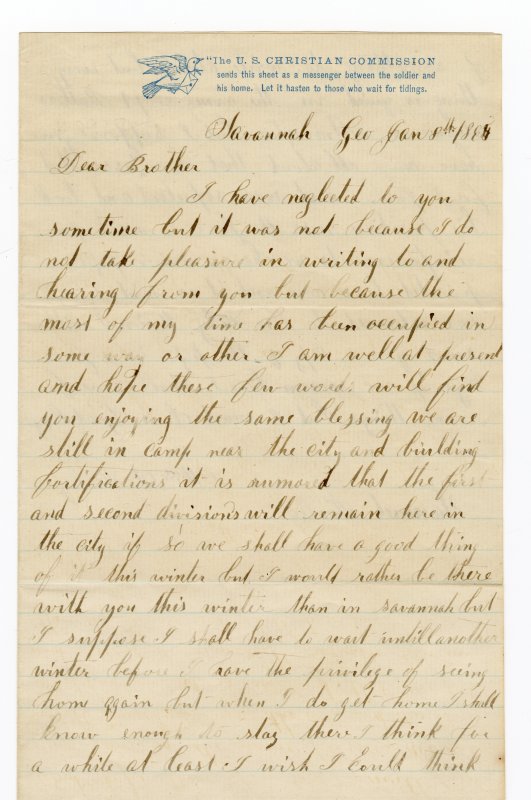 "The U. S. CHRISTIAN COMMISSION
sends this sheet as a messenger between the soldier and
his home. Let it hasten to those who wait for tidings.
Savannah Geo Jan 8th/
Dear Brother
I have neglected to you
sometime but it was not because I do
not take pleasure in writing to and
hearing from you but because the
most of my time has been occupied in
some way or other I am well at present
and hope these few words will find
you enjoying the same blessing we are
still in camp near the city and building
fortifications it is rumored that the first
and second divisions will remain here in
the city if so we shall have a good thing
of it this winter but I would rather be there
with you this winter than in savannah but
I suppose I shall have to wait untill another
winter before I have the privilege of seeing
home again but when I do get home I shall
know enough to stay there I think for
a while at least I wish I could think